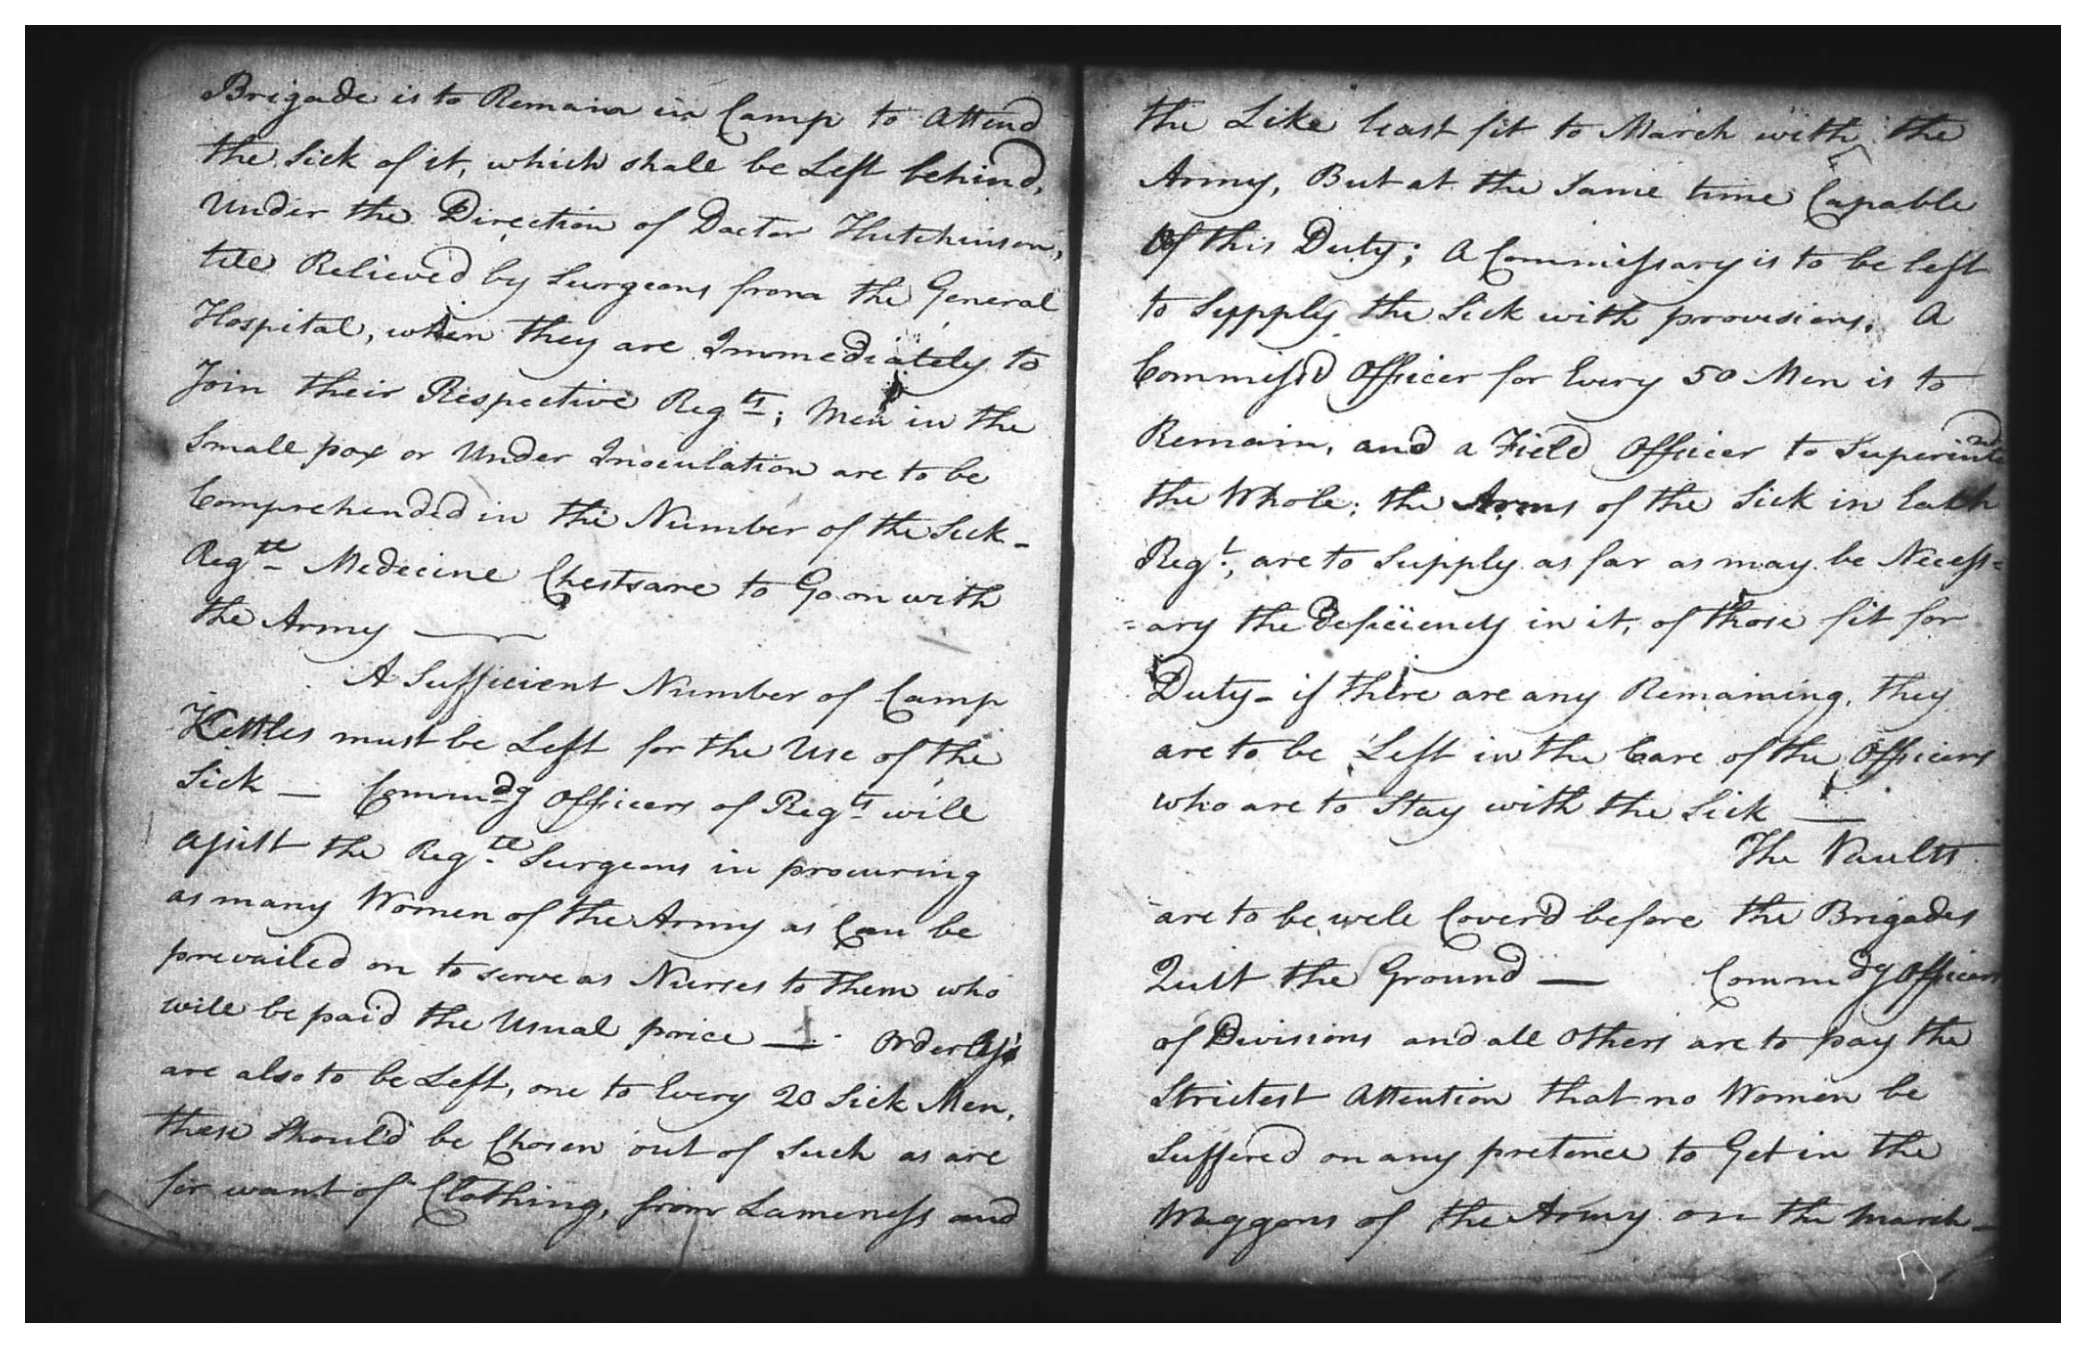 Brigade is to Remain in Camp to Attend
the Sick of it, which shall be Left behind,
Under the Direction of Doctor Hutchinson,
till Relieved by Surgeons from the General
Hospital, when they are Immediately to
Join their Respective Regts; Men in the
Small pox or Under Inoculation are to be
Comprehended in the Number of the Sick -
Regtl Medecine Chests are to Go on with
the Army —
A Sufficient Number of Camp
Kettles must be Left for the Use of the
Sick — Commdg Officers of Regts will
assist the Regtl Surgeons in procuring
as many Women of the Army as Can be
prevailed on to serve as Nurses to them who
will be paid the Usual price — Orderlys
are also to be Left, one to Every 20 Sick Men,
these Should be Chosen out of Such as are
for want of Clothing, from Lameness and
the Like least fit to March with the
Army, But at the Same time Capable
Of this Duty; A Commissary is to be left
to Supply the Sick with provisions. A
Commissd Officer for Every 50 Men is to
Remain, and a Field Officer to Superintend
the Whole; the Arms of the Sick in Each
Regt, are to Supply as far as may be Necess=
=ary the Deficiency in it, of those fit for
Duty - if there are any Remaining, they
are to be Left in the Care of the Officers
who are to Stay with the Sick —
The Vaults
are to be well Cover'd before the Brigades
Quit the Ground — Commdg Officers
of Divisions and all Others are to pay the
Strictest Attention that no Women be
Suffered on any pretence to Get in the
Waggons of the Army on the March —